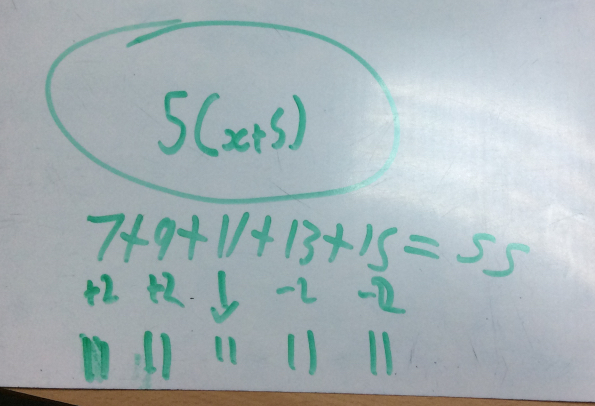 5(x+5)
7+9+11+13+15=55
+2 +2 ↓ -2 -2
11 11 11 11 11